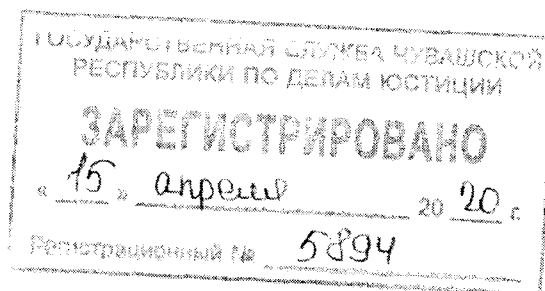 ГОСУДАРСТВЕННАЯ СЛУЖБА ЧУВАШСКОЙ
РЕСПУБЛИКИ ПО ДЕЛАМ ЮСТИЦИИ
ЗАРЕГИСТРИРОВАНО
« 15 » апреля 20 20 г.
Регистрационный № 5894